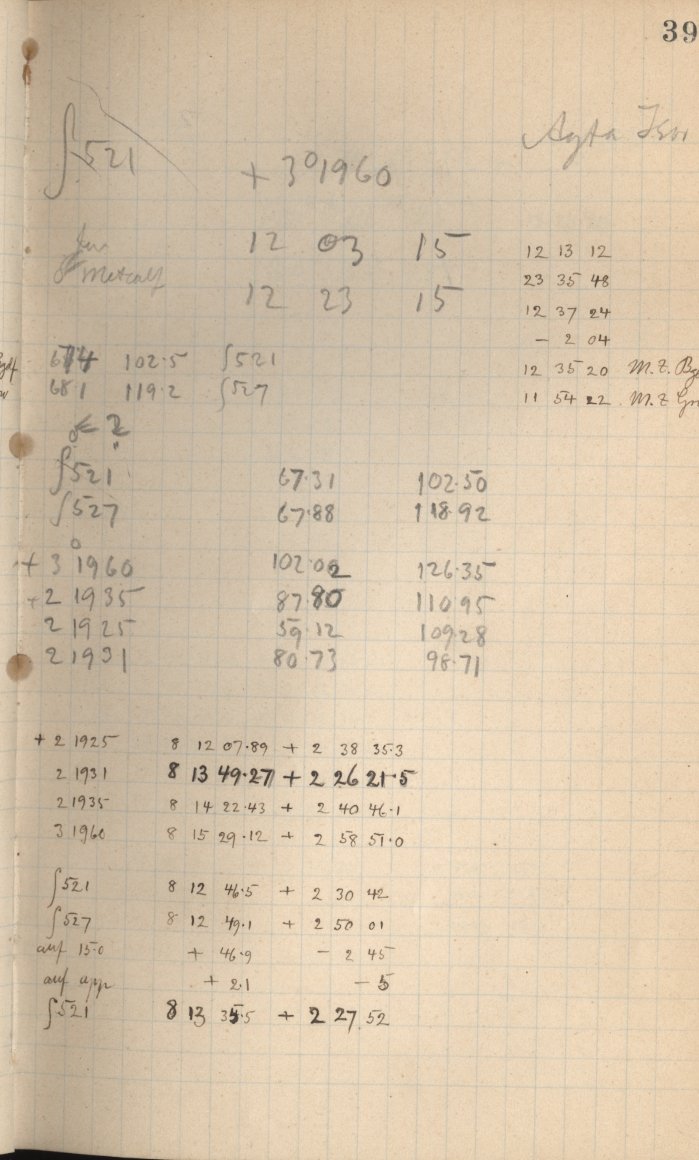 39
∫521 + 3°1960
12 03 15
Metcalf 12 23 15
12 13 12
23 35 48
12 37 24
- 2 04
12 35 20 M.Z.
11 54 22 M.Z
674 102.5 ∫521
681 119.2 ∫527
∫521 67.31 102.50
∫527 67.88 118.92
+ 3° 1960 102.02 126.35
+2 1935 87.80 110.95
2 1925 59.12 109.28
2 1931 80.73 98.71
+ 2 1925 8 12 07.89 + 2 38 35.3
2 1931 8 13 49.27 + 2 26 21.5
2 1935 8 14 22.43 + 2 40 46.1
3 1960 8 15 29.12 + 2 58 51.0
∫521 8 12 46.5 + 2 30 42
∫527 8 12 49.1 + 2 50 01
auf 15.0 + 46.9 - 2 45
auf app + 2.1 - 5
∫521 8 13 35.5 + 2 27 52